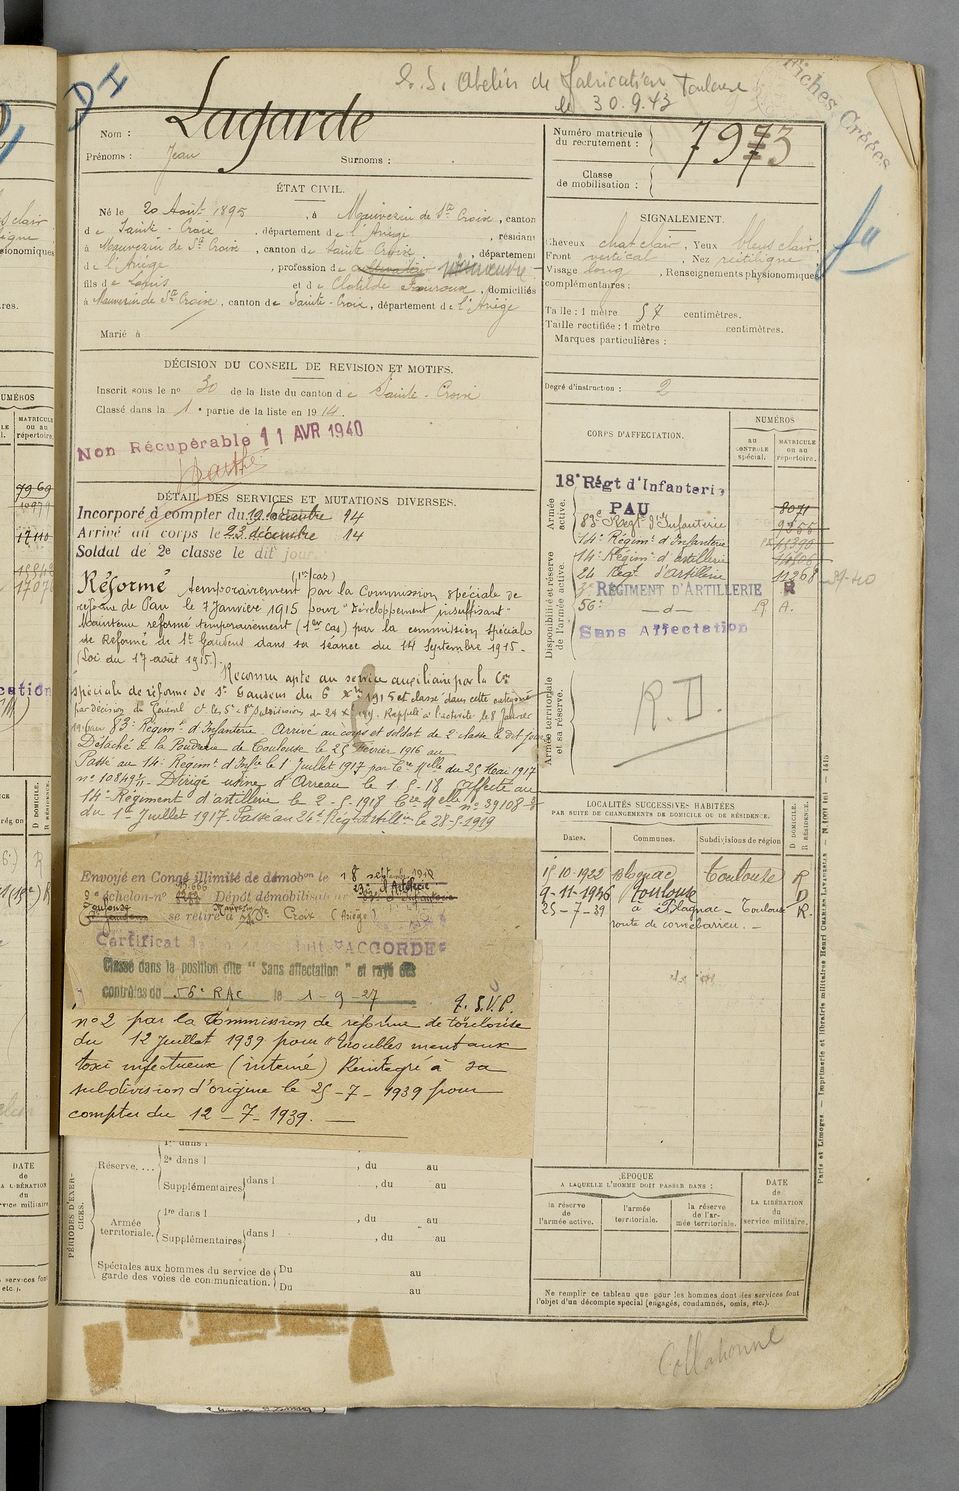 D H
R. S. Atelier de fabrication Toulouse
le 30.9.43
Fiches Créées
Nom : Lagarde
Prénoms : Jean Surnoms :
Numéro matricule du recrutement : 7973
Classe de mobilisation :
ÉTAT CIVIL.
Né le 20 Août 1895, à Mauvezin de Ste Croix, canton
de Sainte-Croix, département de l'Ariège, résidant
à Mauvezin de Ste Croix, canton de Sainte Croix, département
de l'Ariège, profession de cultivateur
fils de Louis et de Clotilde Fauroux, domiciliés
à Mauvezin de Ste Croix, canton de Sainte-Croix, département de l'Ariège
Marié à
SIGNALEMENT.
Cheveux chat clair, Yeux bleus clair,
Front vertical, Nez rectiligne
Visage long, Renseignements physionomiques
complémentaires :
Taille : 1 mètre 57 centimètres.
Taille rectifiée : 1 mètre centimètres.
Marques particulières :
DÉCISION DU CONSEIL DE REVISION ET MOTIFS.
Inscrit sous le no 30 de la liste du canton de Sainte-Croix
Classé dans la 1e partie de la liste en 1914.
Non Récupérable 11 AVR 1940
Degré d'instruction : 2
CORPS D'AFFECTATION.
NUMÉROS
AU CONTROLE spécial.
MATRICULE ou au répertoire.
Armée active.
18e Régt d'Infanterie
PAU
83e Régt d'Infanterie
14e Régimt d'Infanterie
Disponibilité et réserve de l'armée active.
14e Régimt d'artillerie
24 Régt d'artillerie 11268
RÉGIMENT D'ARTILLERIE R
56e — d — R A.
Sans Affectation
Armée territoriale et sa réserve.
R.D.
DÉTAIL DES SERVICES ET MUTATIONS DIVERSES.
Incorporé à compter du 19 décembre 14
Arrivé au corps le 23 décembre 14
Soldat de 2e classe le dit jour
Réformé temporairement (1er cas) par la Commission spéciale de
réforme de Pau le 7 Janvier 1915 pour "Développement insuffisant"
Maintenu réformé temporairement (1er cas) par la commission spéciale
de Réforme de St Gaudens dans sa séance du 14 Septembre 1915.
(Loi du 17 août 1915).
Reconnu apte au service auxiliaire par la Con
spéciale de réforme de St Gaudens du 6 Xbre 1915 et classé dans cette catégorie
par décision du Général Ct les 5e et 8e Subdivisions du 24 Xbre 1915. Rappelé à l'activité le 8 Janvier
1916 au 83e Régimt d'Infanterie. Arrivé au corps et soldat de 2e classe le dit jour
Détaché à la Poudrerie de Toulouse le 25 février 1916 au
Passé au 14e Régiment d'Infie le 1 Juillet 1917 par Cire Mlle du 25 Mai 1917
Dirigé usine d'Arreau le 1.5.18 affecté au
14e Régiment d'artillerie le 2-5-1918 Cire Mlle no 39108
du 1er Juillet 1917. Passé au 24e Rég. Artillie le 28-5-1919
Envoyé en Congé illimité de démobon le 18 septembre 1919
3e échelon-no Dépôt démobilisateur 23e d'Artillerie
Toulouse se retire à Mauvezin Ste Croix (Ariège)
Certificat ACCORDÉ
Classé dans la position dite "Sans affectation" et rayé des
contrôles du 56e RAC le 1-9-27
T.S.V.P.
no 2 par la Commission de réforme de toulouse
du 12 Juillet 1939 pour "troubles mentaux
toxi infectueux (interné) Réintégré à sa
subdivision d'origine le 25-7-1939 pour
compter du 12-7-1939.
LOCALITÉS SUCCESSIVES HABITÉES
PAR SUITE DE CHANGEMENTS DE DOMICILE OU DE RÉSIDENCE.
Dates. Communes. Subdivisions de région
D DOMICILE.
R RÉSIDENCE.
15-10-1922 Blagnac Toulouse R
9-11-1936 Toulouse D
25-7-39 à Blagnac - Toulouse R.
route de cornebarrieu. -
PÉRIODES D'EXERCICES.
1re dans l
Réserve.... 2e dans l , du au
Supplémentaires dans l , du au
Armée territoriale. 1re dans l , du au
Supplémentaires dans l , du au
Spéciales aux hommes du service de garde des voies de communication. Du au
Du au
ÉPOQUE
A LAQUELLE L'HOMME DOIT PASSER DANS :
la réserve de l'armée active.
l'armée territoriale.
la réserve de l'armée territoriale.
DATE de LA LIBÉRATION du service militaire.
Ne remplir ce tableau que pour les hommes dont les services font
l'objet d'un décompte spécial (engagés, condamnés, omis, etc.).
Paris et Limoges — Imprimerie et librairie militaires Henri CHARLES-LAVAUZELLE
Collationné